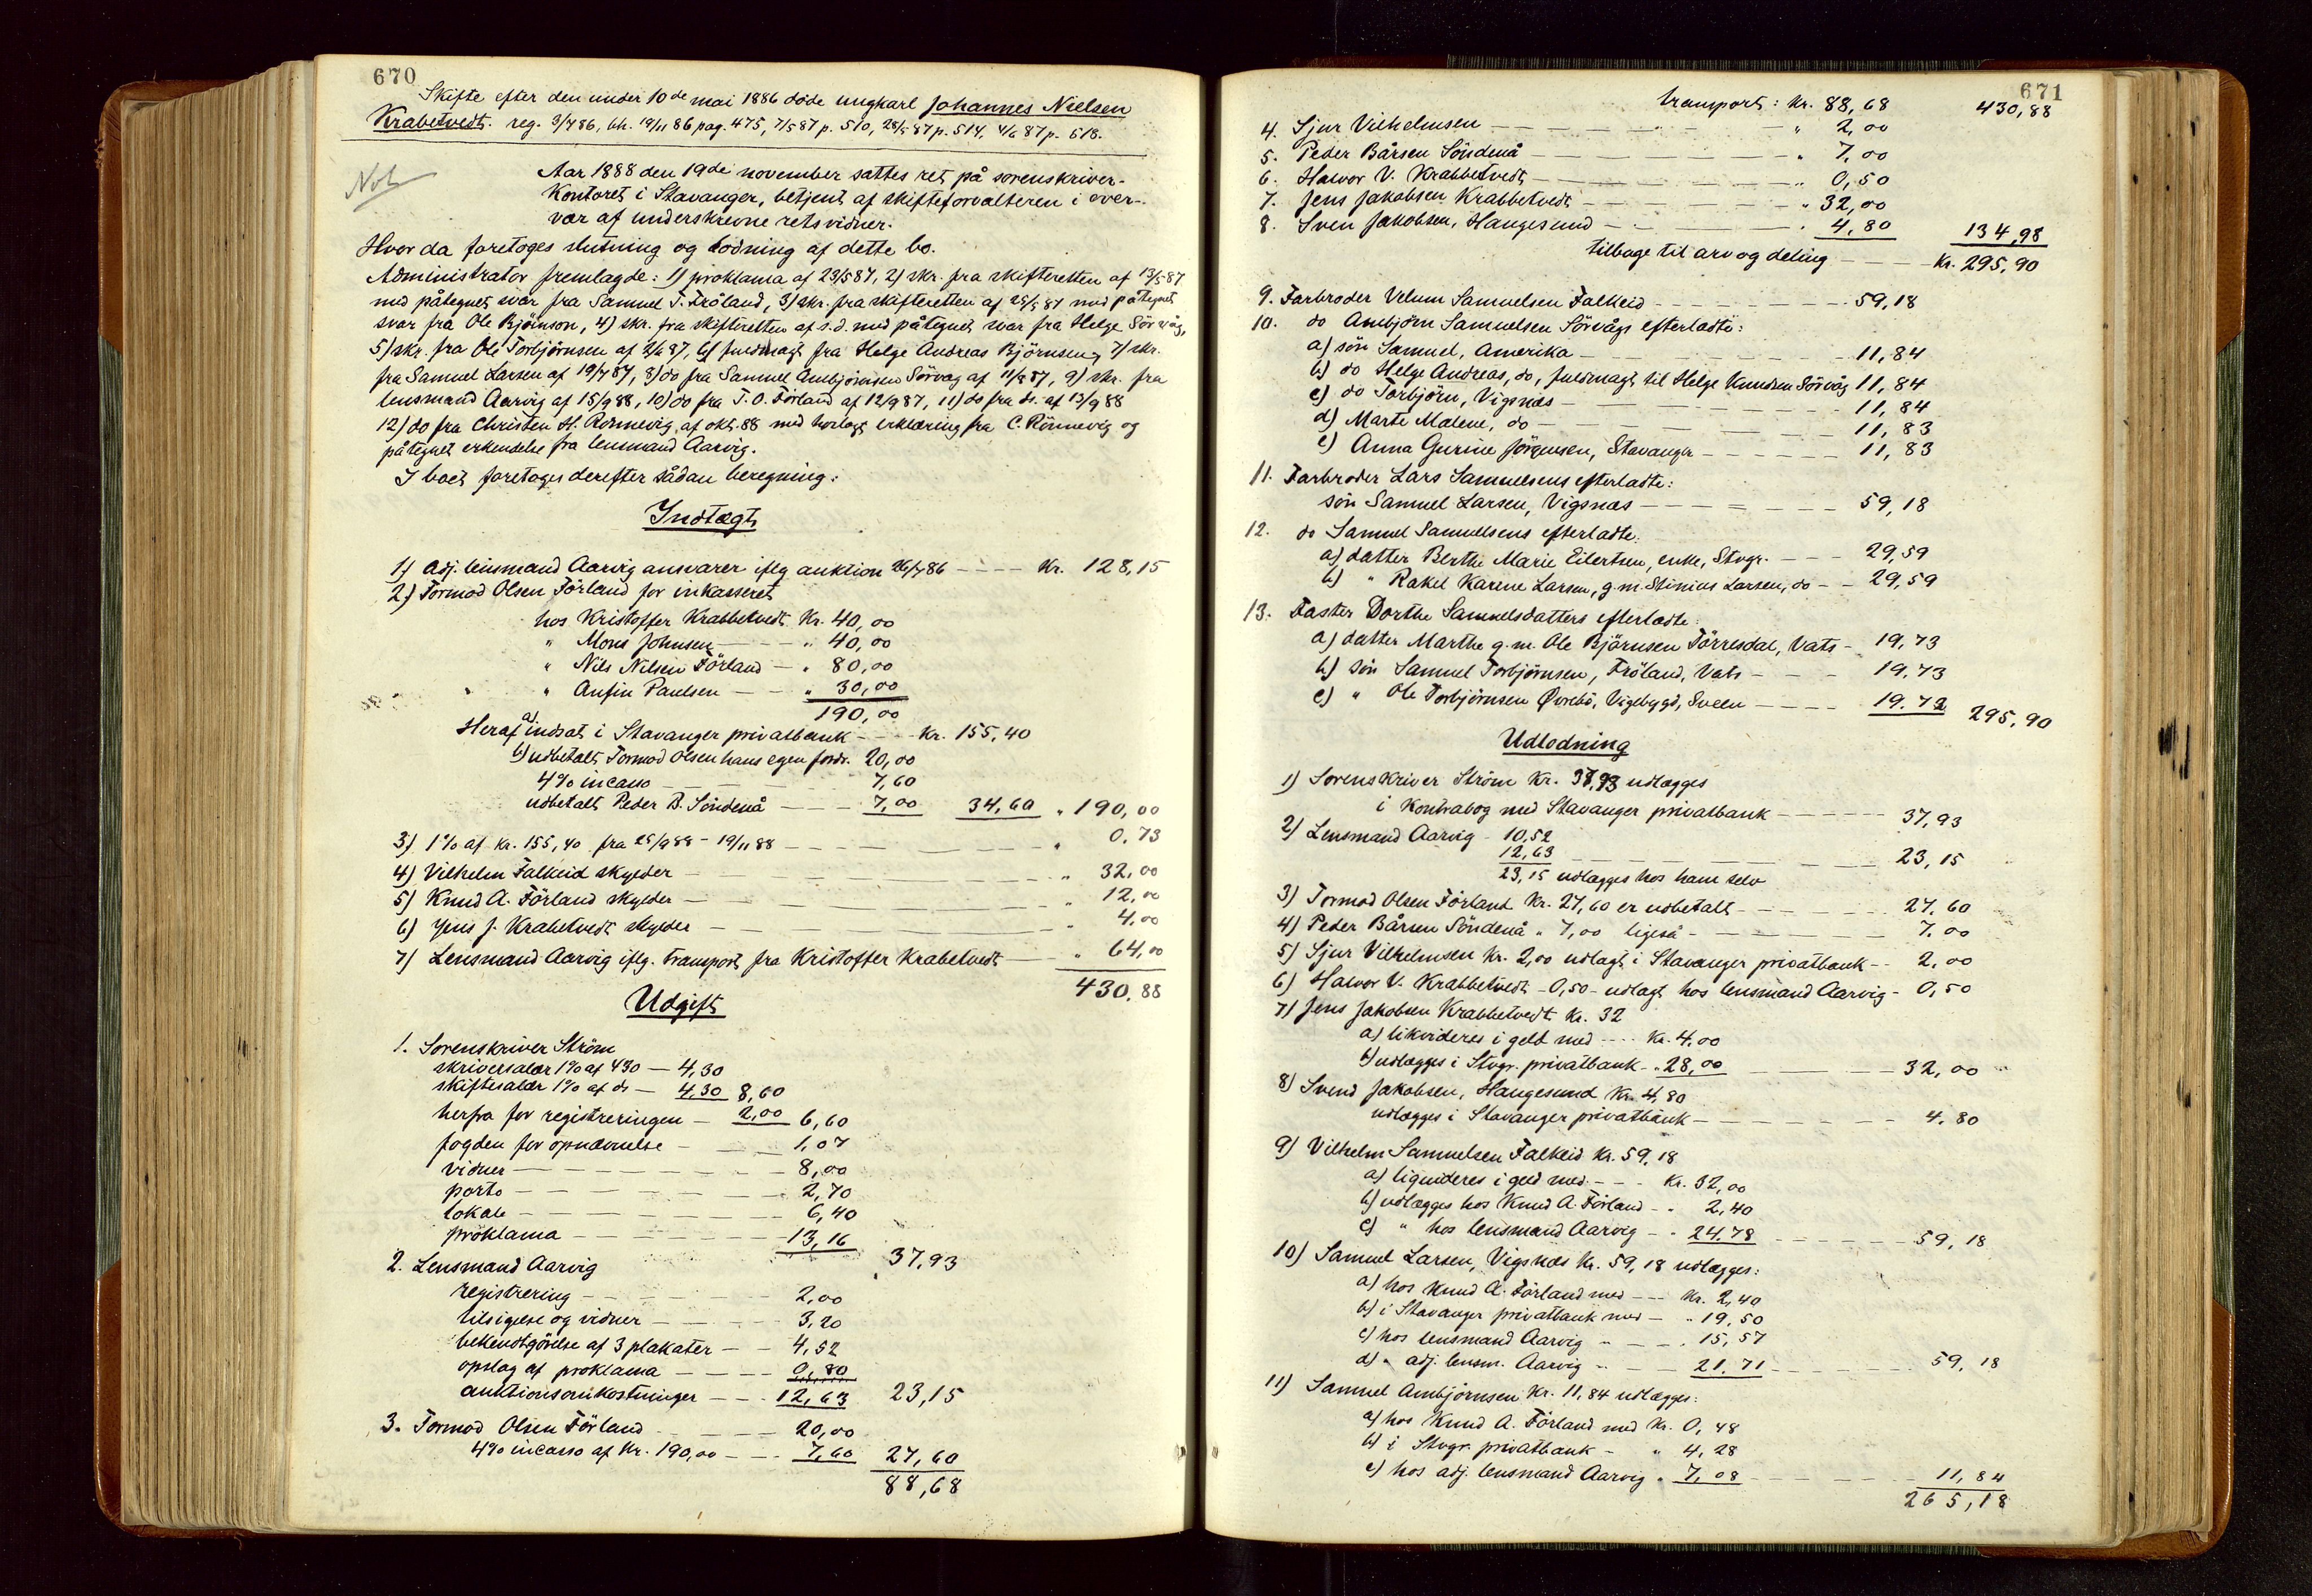 670
Skifte efter den under 10de mai 1886 døde ungkarl Johannes Nielsen
Krabetvedt. reg. 3/7 86, bh. 19/11 86 pag. 475, 7/5 87 p. 510, 28/5 87 p. 514, 4/6 87 p. 518.
Not
Aar 1888 den 19de november sattes ret på sorenskriver-
kontoret i Stavanger, betjent af skifteforvalteren i over-
vær af underskrevne retsvidner.
Hvor da foretoges slutning og lodning af dette bo.
Administrator fremlagde: 1) proklama af 23/5 87, 2) skr. fra skifteretten af 13/5 87
med påtegnet svar fra Samuel T. Fröland, 3) skr. fra skifteretten af 25/5 87 med påtegnet
svar fra Ole Björnson, 4) skr. fra skifteretten af s.d. med påtegnet svar fra Helge Sörvåg,
5) skr. fra Ole Torbjörnsen af 2/6 87, 6) fuldmagt fra Helge Andreas Björnsen, 7) skr.
fra Samuel Larsen af 19/7 87, 8) do fra Samuel Ambjörnsen Sörvåg af 11/8 87, 9) skr. fra
lensmand Aarvig af 15/9 88, 10) do fra T. O. Förland af 12/9 87, 11) do fra ds. af 13/9 88
12) do fra Christen H. Rönnevig af okt. 88 med vedlagt erklæring fra C. Rönnevig og
påtegnet erkendelse fra lensmand Aarvig.
I boet foretages derefter sådan beregning:
Indtægt
1) Adj. lensmand Aarvig ansvarer iflg auktion 26/7 86 - - - - Kr. 128,15
2) Tormod Olsen Förland for inkasseret
hos Kristoffer Krabbetvedt Kr. 40,00
" Mons Johnsen - - - " 40,00
" Nils Nilsen Förland - " 80,00
" Anfin Paulsen - - " 30,00
190,00
Heraf a) indsat i Stavanger privatbank - - - Kr. 155,40
b) udbetalt Tormod Olsen hans egen fordr. 20,00
4% incasso - - - 7,60
udbetalt Peder B. Söndenå - - - 7,00 34,60 " 190,00
3) 1% af Kr. 155,40 fra 25/9 88 - 19/11 88 - - - " 0,73
4) Vilhelm Falkeid skylder - - - " 32,00
5) Knud A. Förland skylder - - - " 12,00
6) Jens J. Krabetvedt skylder - - - " 4,00
7) Lensmand Aarvig iflg. transport fra Kristoffer Krabetvedt - " 64,00
430,88
Udgift
1. Sorenskriver Ström
skriversalær 1% af 430 - 4,30
skiftesalær 1% af ds - 4,30 8,60
herfra for registreringen - 2,00 6,60
fogden for opnævnelse - 1,07
vidner - - - 8,00
porto - - - 2,70
lokale - - - 6,40
proklama - - - 13,16
37,93
2. Lensmand Aarvig
registrering - - - 2,00
tilsigelse og vidner - - - 3,20
bekendtgörelse af 3 plakater - - 4,52
opslag af proklama - - - 0,80
auktionsomkostninger - - - 12,63 23,15
3. Tormod Olsen Förland - - - 20,00
4% incasso af Kr. 190,00 - - - 7,60 27,60
88,68
671
transport: Kr. 88,68 430,88
4. Sjur Vilhelmsen - - - " 2,00
5. Peder Bårsen Söndenå - - - " 7,00
6. Halvor V. Krabbetvedt - - - " 0,50
7. Jens Jakobsen Krabbetvedt - - - " 32,00
8. Sven Jakobsen, Haugesund - - - " 4,80 134,98
tilbage til arv og deling - - - Kr. 295,90
9. Farbroder Velum Samuelsen Falkeid - - - 59,18
10. do Ambjörn Samuelsen Sörvågs efterladte:
a) sön Samuel, Amerika - - - 11,84
b) do Helge Andreas, do, fuldmagt til Helge Knudsen Sörvåg 11,84
c) do Torbjörn, Vigsnæs - - - 11,84
d) Marte Malene, do - - - 11,83
e) Anna Gurine Jörgensen, Stavanger - - - 11,83
11. Farbroder Lars Samuelsens efterladte:
sön Samuel Larsen, Vigsnæs - - - 59,18
12. do Samuel Samuelsens efterladte:
a) datter Berthe Marie Eilertsen, enke, Stvgr. - - - 29,59
b) " Rakel Karine Larsen, g.m. Stinius Larsen, do - - 29,59
13. Faster Dorthe Samuelsdatters efterladte:
a) datter Marthe g.m. Ole Björnsen Törresdal, Vats - 19,73
b) sön Samuel Torbjörnsen, Fröland, Vats - - - 19,73
c) " Ole Torbjörnsen Øvrebö, Vigebygd, Sveen - - - 19,72 295,90
Udlodning
1) Sorenskriver Ström Kr. 37,93 udlægges
i Kontrabog med Stavanger privatbank - - - 37,93
2) Lensmand Aarvig - 10,52
12,63 - - - 23,15
23,15 udlægges hos ham selv
3) Tormod Olsen Förland Kr. 27,60 er udbetalt - - - 27,60
4) Peder Bårsen Söndenå " 7,00 ligeså - - - 7,00
5) Sjur Vilhelmsen Kr. 2,00 udlagt i Stavanger privatbank - - 2,00
6) Halvor V. Krabbetvedt - 0,50 - udlagt hos lensmand Aarvig - 0,50
7) Jens Jakobsen Krabbetvedt Kr. 32
a) likvideres i geld med - - - Kr. 4,00
b) udlægges i Stvgr. privatbank - " 28,00 - - - 32,00
8) Svend Jakobsen, Haugesund Kr. 4,80
udlægges i Stavanger privatbank - - - 4,80
9) Vilhelm Samuelsen Falkeid Kr. 59,18
a) liquideres i geld med - - - Kr. 32,00
b) udlægges hos Knud A. Förland - " 2,40
c) " hos lensmand Aarvig - " 24,78 - - - 59,18
10) Samuel Larsen, Vigsnæs Kr. 59,18 udlægges:
a) hos Knud A. Förland med - - - Kr. 2,40
b) i Stavanger privatbank med - " 19,50
c) hos lensmand Aarvig - - - " 15,57
d) " adj. lensm. Aarvig - - - 21,71 - - - 59,18
11) Samuel Ambjörnsen Kr. 11,84 udlægges:
a) hos Knud A. Förland med Kr. 0,48
b) i Stvgr. privatbank - " 4,28
c) hos adj. lensmand Aarvig " 7,08 - - - 11,84
265,18